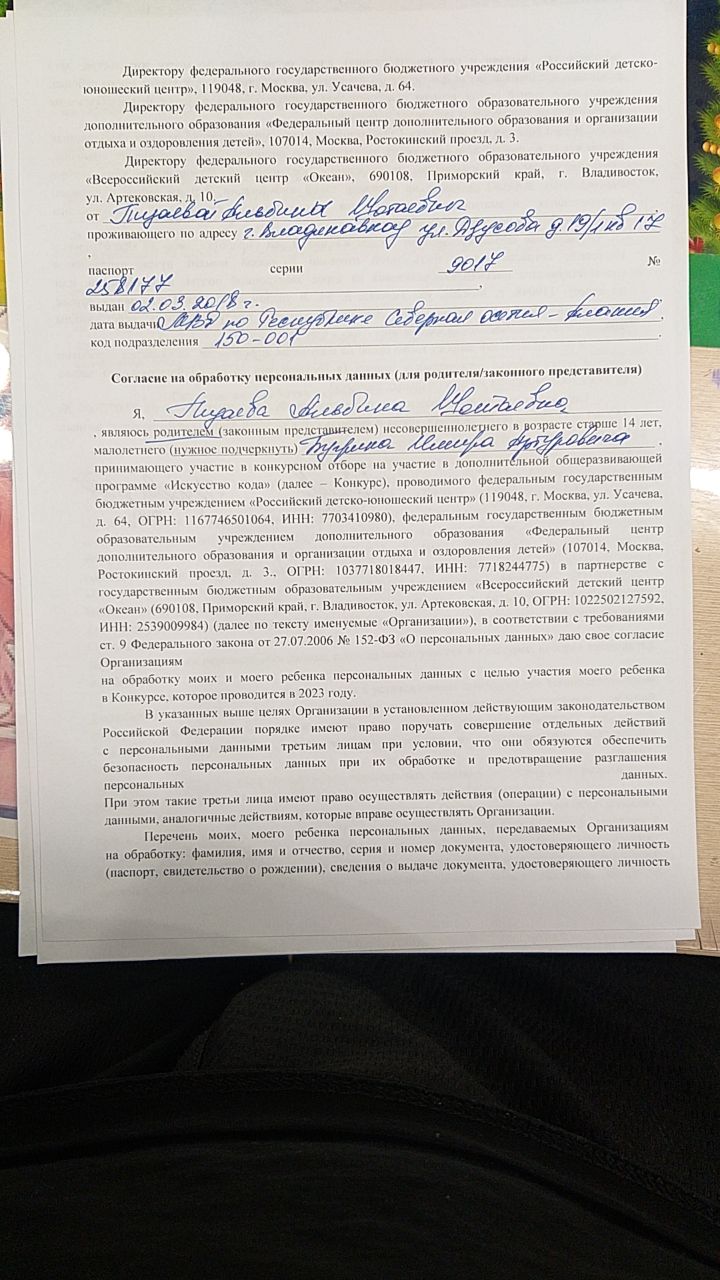 Директору федерального государственного бюджетного учреждения «Российский детско-
юношеский центр», 119048, г. Москва, ул. Усачева, д. 64.
Директору федерального государственного бюджетного образовательного учреждения
дополнительного образования «Федеральный центр дополнительного образования и организации
отдыха и оздоровления детей», 107014, Москва, Ростокинский проезд, д. 3.
Директору федерального государственного бюджетного образовательного учреждения
«Всероссийский детский центр «Океан», 690108, Приморский край, г. Владивосток,
ул. Артековская, д. 10,
от Альбины
проживающего по адресу г. Владикавказ ул. д. 19/1 кв 17
,
паспорт серии 9017 №
258177 ,
выдан 02.03.2018 г.
дата выдачи МВД по Республике Северная Осетия - Алания .
код подразделения 150-001 .
Согласие на обработку персональных данных (для родителя/законного представителя)
Я, Альбина
, являюсь родителем (законным представителем) несовершеннолетнего в возрасте старше 14 лет,
малолетнего (нужное подчеркнуть) Артуровича ,
принимающего участие в конкурсном отборе на участие в дополнительной общеразвивающей
программе «Искусство кода» (далее – Конкурс), проводимого федеральным государственным
бюджетным учреждением «Российский детско-юношеский центр» (119048, г. Москва, ул. Усачева,
д. 64, ОГРН: 1167746501064, ИНН: 7703410980), федеральным государственным бюджетным
образовательным учреждением дополнительного образования «Федеральный центр
дополнительного образования и организации отдыха и оздоровления детей» (107014, Москва,
Ростокинский проезд, д. 3., ОГРН: 1037718018447, ИНН: 7718244775) в партнерстве с
государственным бюджетным образовательным учреждением «Всероссийский детский центр
«Океан» (690108, Приморский край, г. Владивосток, ул. Артековская, д. 10, ОГРН: 1022502127592,
ИНН: 2539009984) (далее по тексту именуемые «Организации»), в соответствии с требованиями
ст. 9 Федерального закона от 27.07.2006 № 152-ФЗ «О персональных данных» даю свое согласие
Организациям
на обработку моих и моего ребенка персональных данных с целью участия моего ребенка
в Конкурсе, которое проводится в 2023 году.
В указанных выше целях Организации в установленном действующим законодательством
Российской Федерации порядке имеют право поручать совершение отдельных действий
с персональными данными третьим лицам при условии, что они обязуются обеспечить
безопасность персональных данных при их обработке и предотвращение разглашения
персональных данных.
При этом такие третьи лица имеют право осуществлять действия (операции) с персональными
данными, аналогичные действиям, которые вправе осуществлять Организации.
Перечень моих, моего ребенка персональных данных, передаваемых Организациям
на обработку: фамилия, имя и отчество, серия и номер документа, удостоверяющего личность
(паспорт, свидетельство о рождении), сведения о выдаче документа, удостоверяющего личность